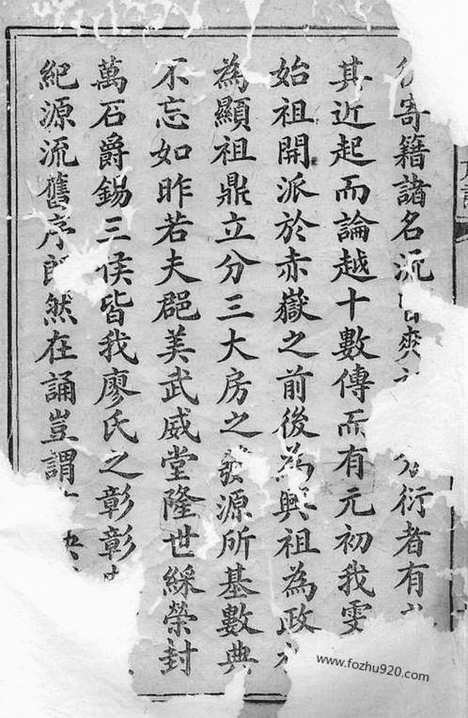 寄籍諸名沉奕衍者有
其近起而論越十數傳而有元初我雯
始祖開派於赤嶽之前後為興祖為政
為顯祖鼎立分三大房之發源所基數典
不忘如昨若夫郡美武威堂隆世綵榮封
萬石爵錫三侯皆我廖氏之彰彰
紀源流舊序朗然在誦豈謂
www.fozhu920.com